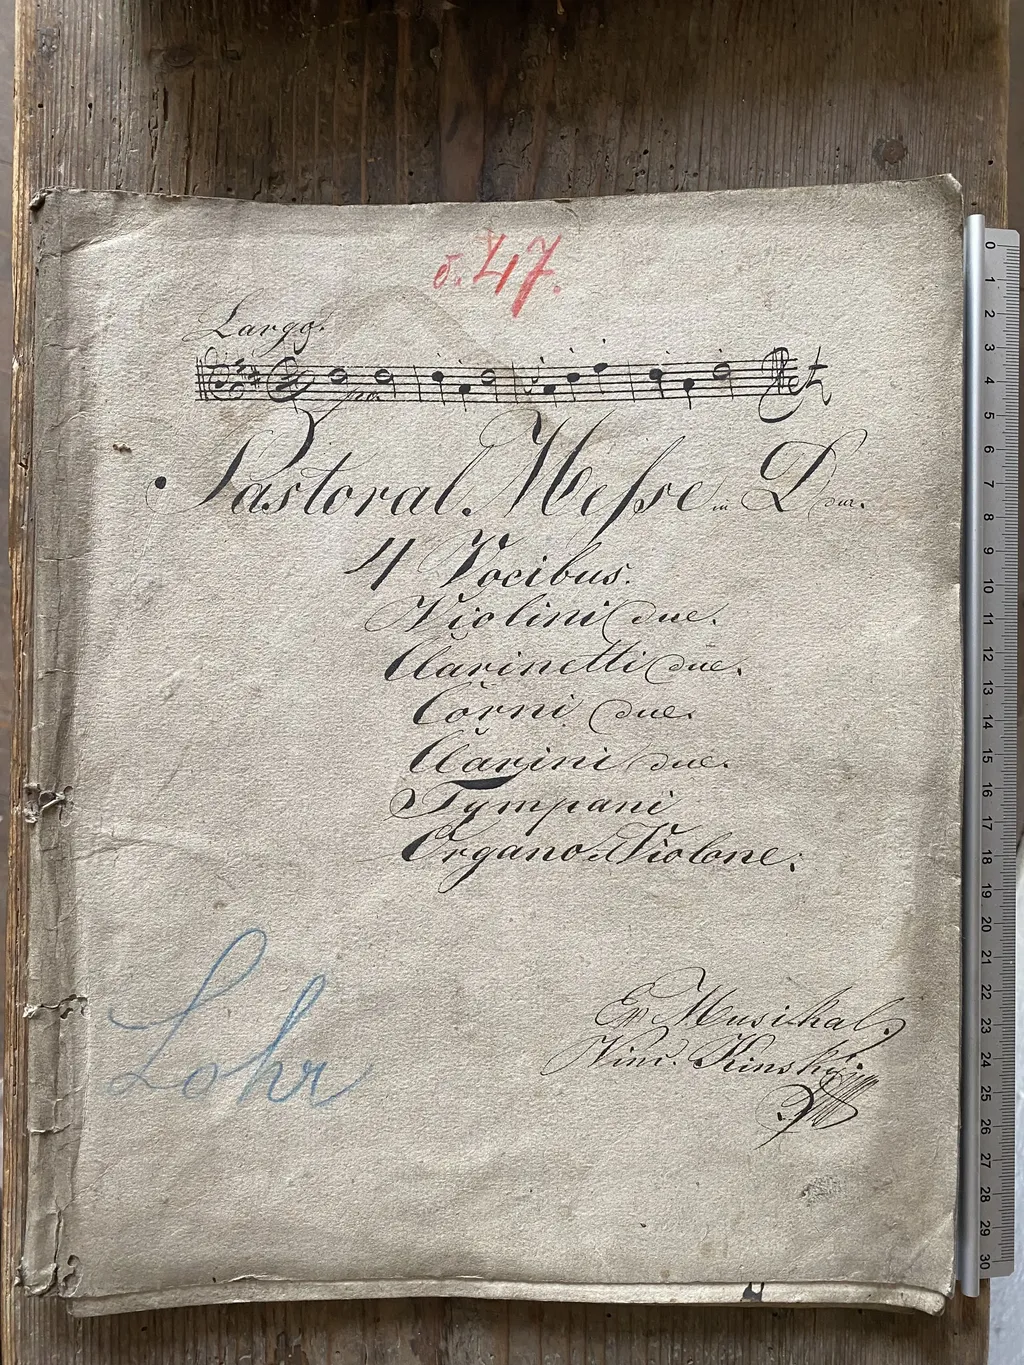 č. 47.
Largo.
Pastoral Messe in D dur.
4 Vocibus.
Violini due.
Clarinetti due.
Corni due.
Clarini due.
Tympani
Organo et Violone.
Ex Musikal.
Vinc. Kinský
Lohr
0 1 2 3 4 5 6 7 8 9 10 11 12 13 14 15 16 17 18 19 20 21 22 23 24 25 26 27 28 29 30